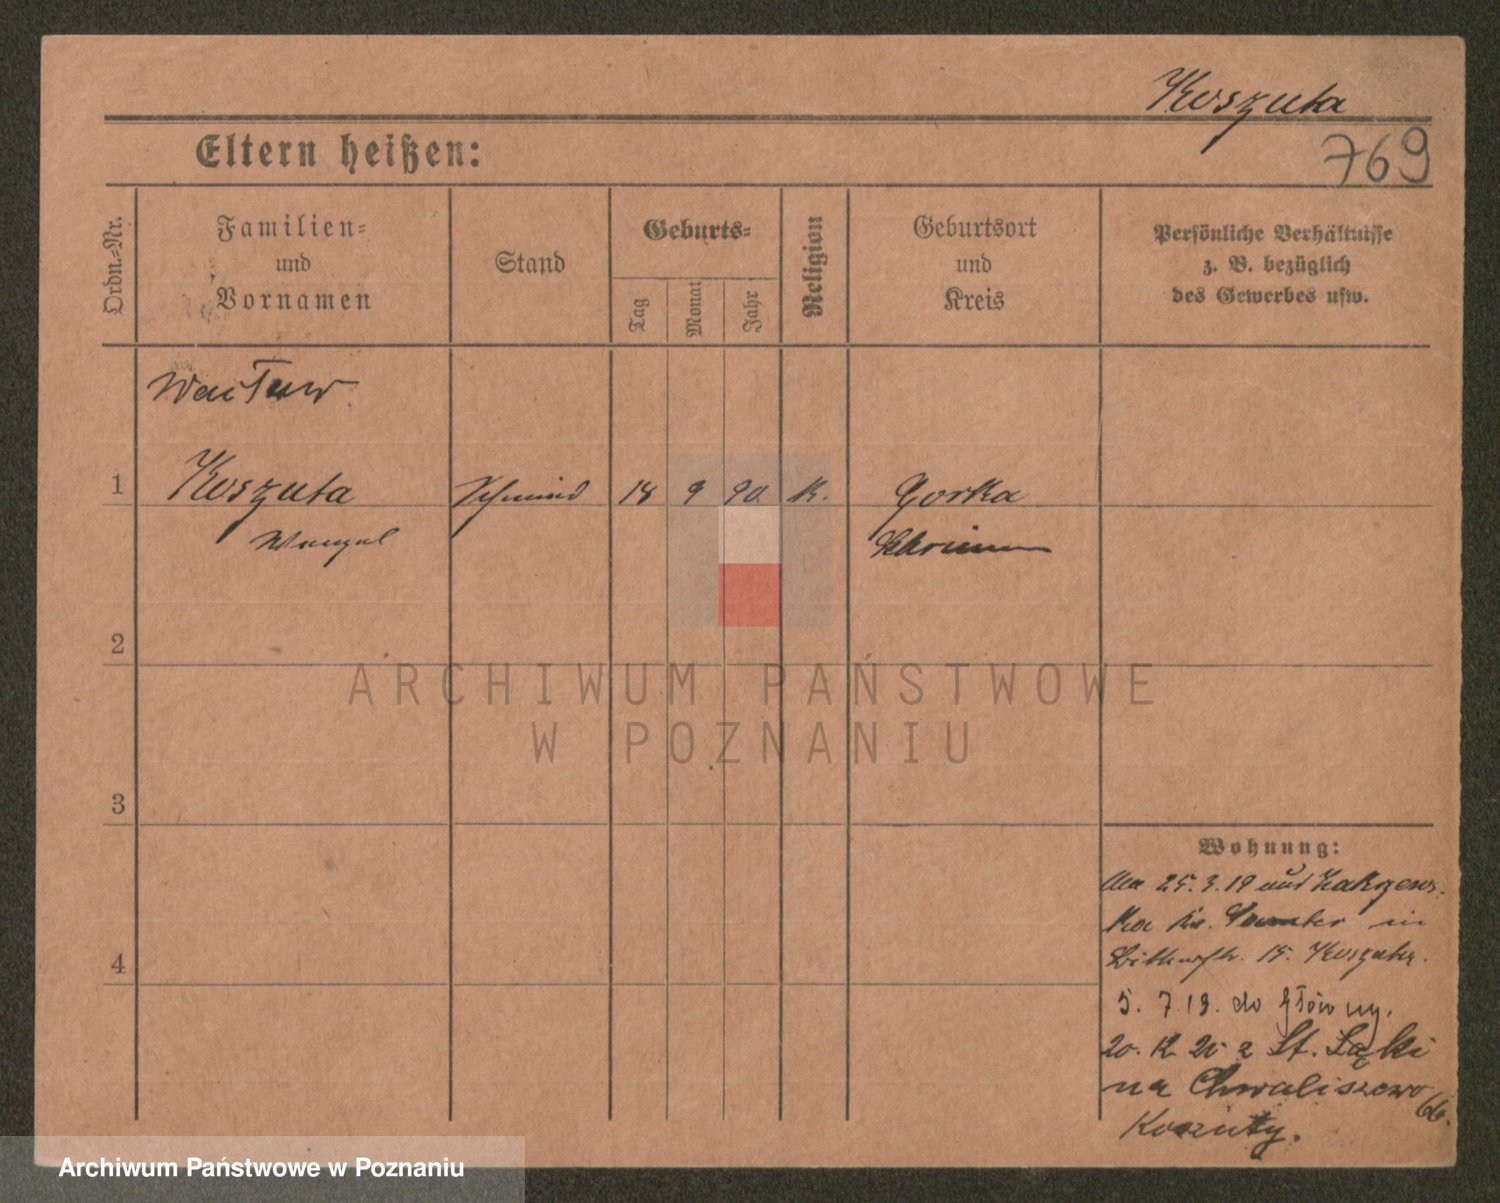 Koszuta
769
Eltern heißen:
Ordn.-Nr.
Familien-
und
Vornamen
Stand
Geburts-
Tag
Monat
Jahr
Religion
Geburtsort
und
Kreis
Persönliche Verhältnisse
z. B. bezüglich
des Gewerbes usw.
Wacław
1
Koszuta
Schmied
18
9
90.
K.
Gorka
Wenzel
Schrimm
2
ARCHIWUM PAŃSTWOWE
W POZNANIU
3
Wohnung:
25. 3. 19 aus Zakrzews-
ka Kr. Samter in
15. Koszuta.
4
5. 7. 19. do Główny.
20. 12. 20 z St. Łąki
na Chwaliszewo
66.
Koszuty.
Archiwum Państwowe w Poznaniu